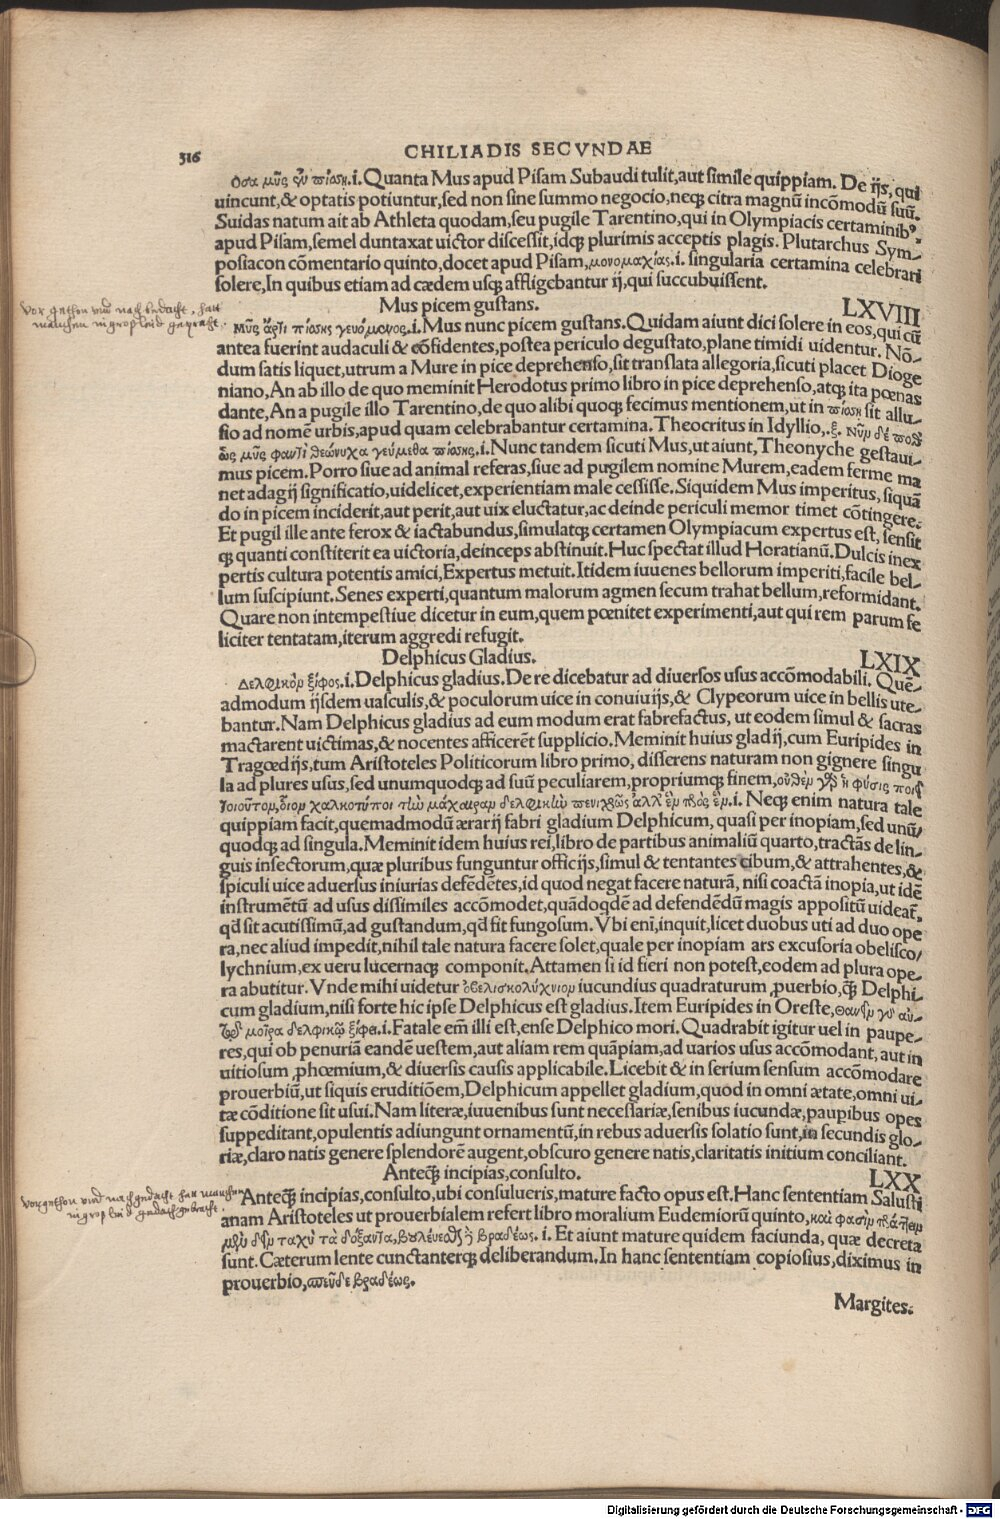 316
CHILIADIS SECVNDAE
Ὅσα μῦς ἐν πίσῃ.i. Quanta Mus apud Pisam Subaudi tulit, aut simile quippiam. De ijs, qui
uincunt, & optatis potiuntur, sed non sine summo negocio, neqꝫ citra magnū incōmodū suū.
Suidas natum ait ab Athleta quodam, seu pugile Tarentino, qui in Olympiacis certaminibꝰ
apud Pisam, semel duntaxat uictor discessit, idqꝫ plurimis acceptis plagis. Plutarchus Sym-
posiacon cōmentario quinto, docet apud Pisam, μονομαχίας.i. singularia certamina celebrari
solere, In quibus etiam ad cædem usqꝫ affligebantur ij, qui succubuissent.
Mus picem gustans. LXVIII
Vor gethon und nach bedacht, hatt
manchen in gros leid gepracht.
Μῦς ἄρτι πίσσης γευόμενος.i. Mus nunc picem gustans. Quidam aiunt dici solere in eos, qui cū
antea fuerint audaculi & cōfidentes, postea periculo degustato, plane timidi uidentur. Nō-
dum satis liquet, utrum a Mure in pice deprehenso, sit translata allegoria, sicuti placet Dioge
niano, An ab illo de quo meminit Herodotus primo libro in pice deprehenso, atqꝫ ita pœnas
dante, An a pugile illo Tarentino, de quo alibi quoqꝫ fecimus mentionem, ut in πίσσῃ sit allu-
sio ad nomē urbis, apud quam celebrabantur certamina. Theocritus in Idyllio, .ξ. Νῦν δέ ποθ'
ὡς μῦς φαντὶ θεώνυχα γεύμεθα πίσσης.i. Nunc tandem sicuti Mus, ut aiunt, Theonyche gestaui-
mus picem. Porro siue ad animal referas, siue ad pugilem nomine Murem, eadem ferme ma
net adagij significatio, uidelicet, experientiam male cessisse. Siquidem Mus imperitus, siquā
do in picem inciderit, aut perit, aut uix eluctatur, ac deinde periculi memor timet cōtingere.
Et pugil ille ante ferox & iactabundus, simulatqꝫ certamen Olympiacum expertus est, sensit
qꝫ quanti constiterit ea uictoria, deinceps abstinuit. Huc spectat illud Horatianū. Dulcis inex
pertis cultura potentis amici, Expertus metuit. Itidem iuuenes bellorum imperiti, facile bel-
lum suscipiunt. Senes experti, quantum malorum agmen secum trahat bellum, reformidant.
Quare non intempestiue dicetur in eum, quem pœnitet experimenti, aut qui rem parum fe
liciter tentatam, iterum aggredi refugit.
Delphicus Gladius. LXIX
Δελφικὸν ξίφος.i. Delphicus gladius. De re dicebatur ad diuersos usus accōmodabili. Quē-
admodum ijsdem uasculis, & poculorum uice in conuiuijs, & Clypeorum uice in bellis ute-
bantur. Nam Delphicus gladius ad eum modum erat fabrefactus, ut eodem simul & sacras
mactarent uictimas, & nocentes afficerēt supplicio. Meminit huius gladij, cum Euripides in
Tragœdijs, tum Aristoteles Politicorum libro primo, disserens naturam non gignere singu
la ad plures usus, sed unumquodqꝫ ad suū peculiarem, propriumqꝫ finem, οὐθὲν γὰρ ἡ φύσις ποιεῖ
τοιοῦτον, οἷον χαλκοτύποι τὴν μάχαιραν δελφικὴν πενιχρῶς ἀλλ' ἓν πρὸς ἕν.i. Neqꝫ enim natura tale
quippiam facit, quemadmodū ærarij fabri gladium Delphicum, quasi per inopiam, sed unū/
quodqꝫ ad singula. Meminit idem huius rei, libro de partibus animaliū quarto, tractās de lin-
guis insectorum, quæ pluribus funguntur officijs, simul & tentantes cibum, & attrahentes, &
spiculi uice aduersus iniurias defēdētes, id quod negat facere naturā, nisi coactā inopia, ut idē
instrumētū ad usus dissimiles accōmodet, quādoqdē ad defendēdū magis appositū uideat̄,
qđ sit acutissimū, ad gustandum, qđ fit fungosum. Vbi enī, inquit, licet duobus uti ad duo ope
ra, nec aliud impedit, nihil tale natura facere solet, quale per inopiam ars excusoria obelisco/
lychnium, ex ueru lucernaqꝫ componit. Attamen si id fieri non potest, eodem ad plura ope-
ra abutitur. Vnde mihi uidetur ὀβελισκολύχνιον iucundius quadraturum ꝓuerbio, qꝫ̄ Delphi-
cum gladium, nisi forte hic ipse Delphicus est gladius. Item Euripides in Oreste, θανεῖν γὰρ αὐ-
τῷ μοῖρα δελφικῷ ξίφει.i. Fatale em̄ illi est, ense Delphico mori. Quadrabit igitur uel in paupe-
res, qui ob penuriā eandē uestem, aut aliam rem quāpiam, ad uarios usus accōmodant, aut in
uitiosum ꝓhœmium, & diuersis causis applicabile. Licebit & in serium sensum accōmodare
prouerbiū, ut siquis eruditiōem, Delphicum appellet gladium, quod in omni ætate, omni ui-
tæ cōditione sit usui. Nam literæ, iuuenibus sunt necessariæ, senibus iucundæ, pauꝑibus opes
suppeditant, opulentis adiungunt ornamentū, in rebus aduersis solatio sunt, in secundis glo-
riæ, claro natis genere splendorē augent, obscuro genere natis, claritatis initium conciliant.
Anteqꝫ̄ incipias, consulto. LXX
Vorgethon und nachgedacht hat manchen
in gros leid gebracht.
Anteqꝫ̄ incipias, consulto, ubi consulueris, mature facto opus est. Hanc sententiam Salusti
anam Aristoteles ut prouerbialem refert libro moralium Eudemiorū quinto, καὶ φασὶν πράττειν
μὲν δεῖν ταχὺ τὰ δόξαντα, βουλεύεσθαι δὲ βραδέως. i. Et aiunt mature quidem faciunda, quæ decreta
sunt. Cæterum lente cunctanterqꝫ deliberandum. In hanc sententiam copiosius, diximus in
prouerbio, σπεῦδε βραδέως.
Margites.
Digitalisierung gefördert durch die Deutsche Forschungsgemeinschaft - DFG